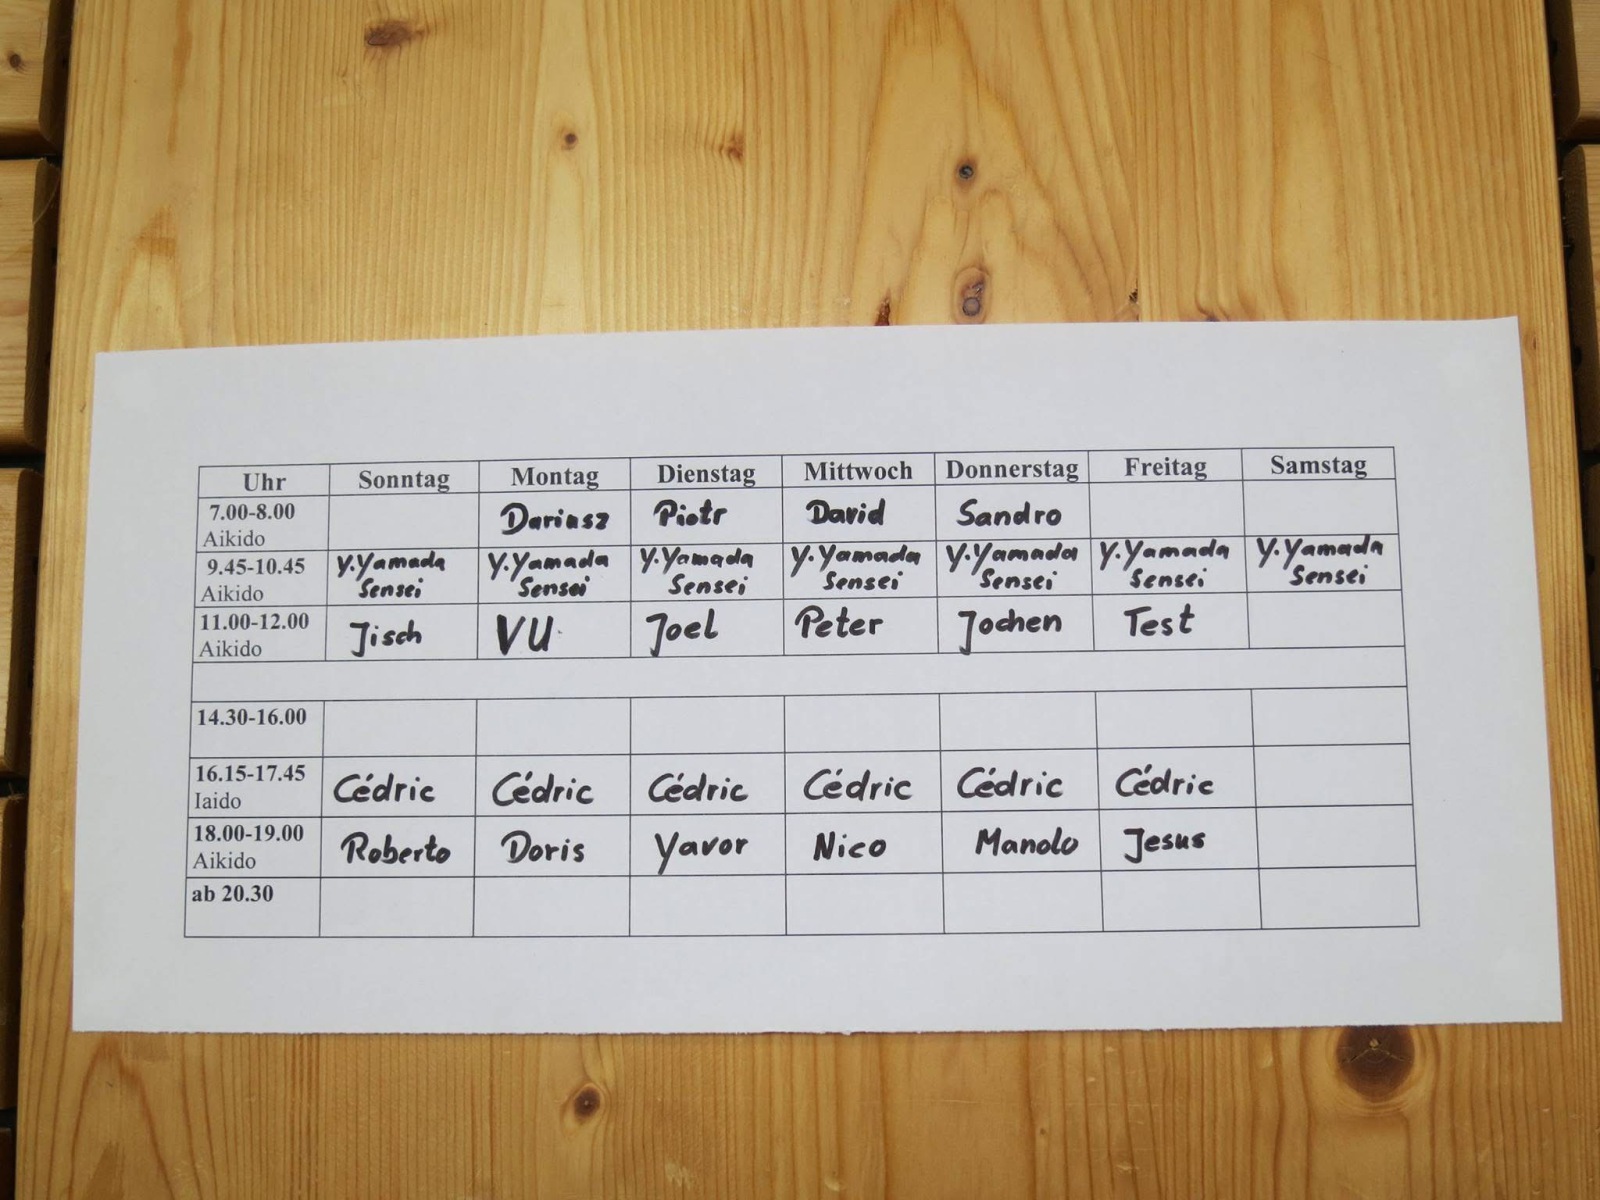 Uhr Sonntag Montag Dienstag Mittwoch Donnerstag Freitag Samstag
7.00-8.00 Dariusz Piotr David Sandro
Aikido
9.45-10.45 Y.Yamada Y.Yamada Y.Yamada Y.Yamada Y.Yamada Y.Yamada Y.Yamada
Aikido Sensei Sensei Sensei Sensei Sensei Sensei Sensei
11.00-12.00 Jisch VU Joel Peter Jochen Test
Aikido
14.30-16.00
16.15-17.45 Cédric Cédric Cédric Cédric Cédric Cédric
Iaido
18.00-19.00 Roberto Doris Yavor Nico Manolo Jesus
Aikido
ab 20.30